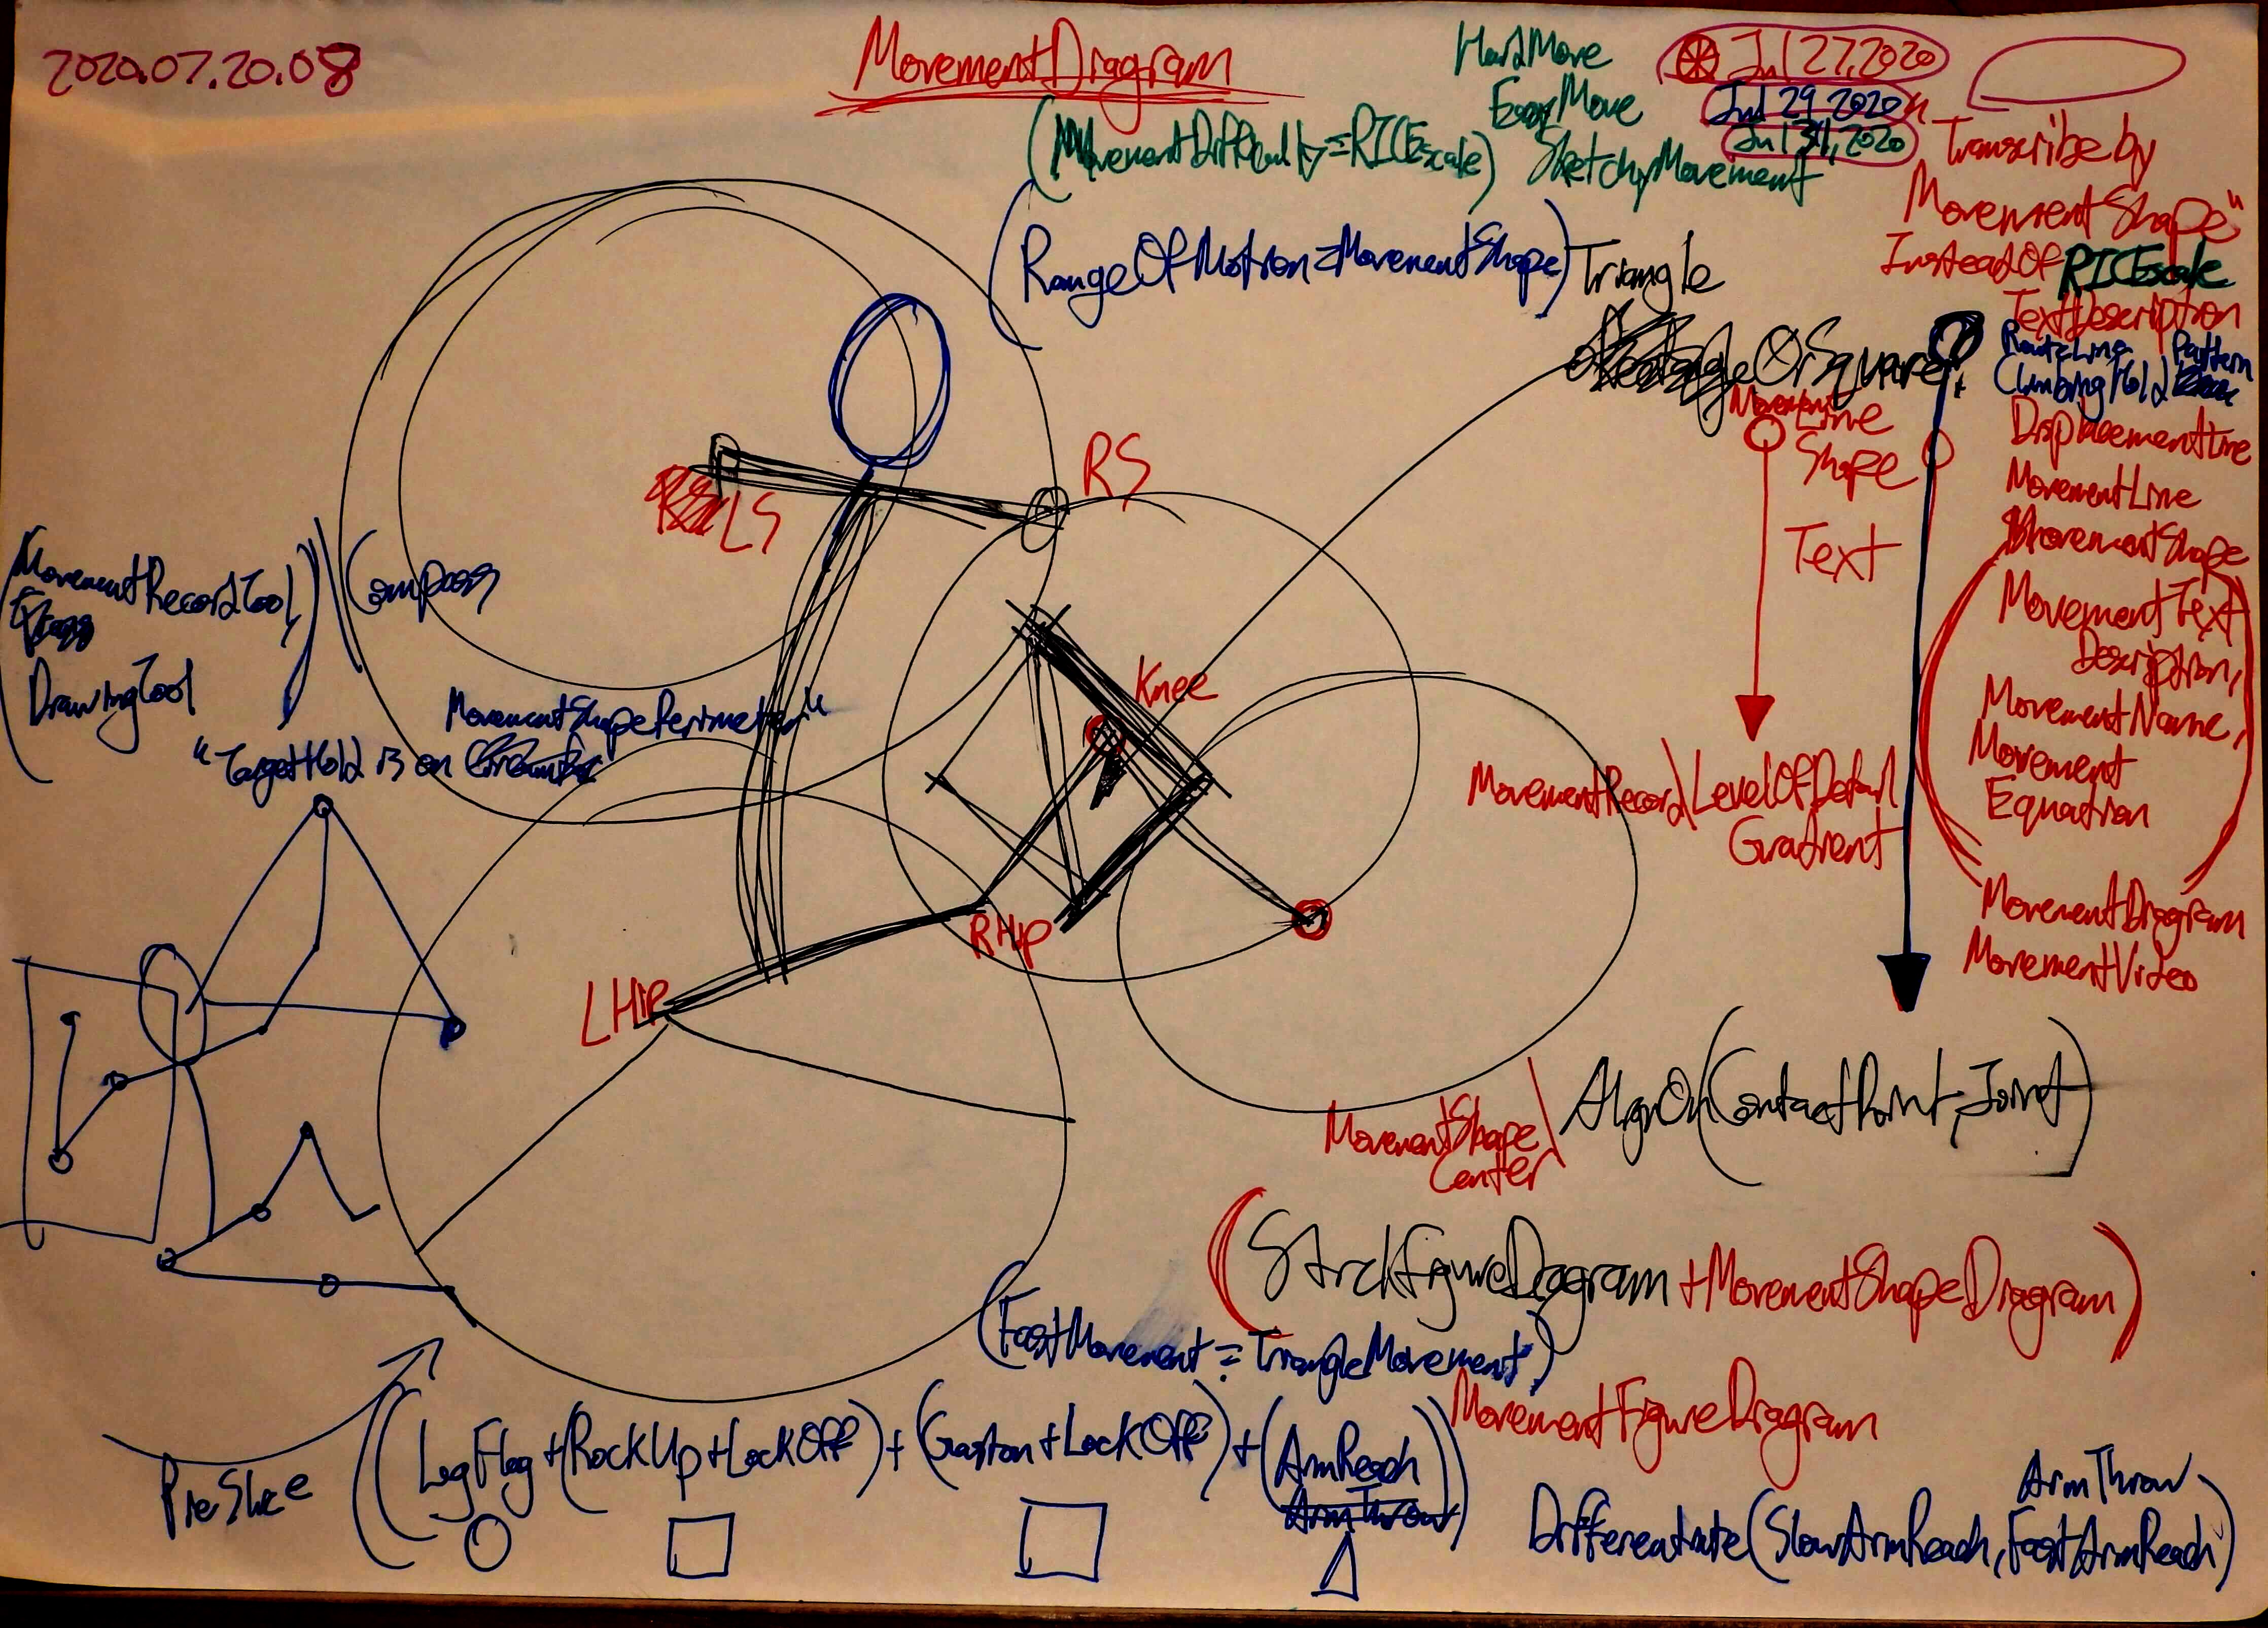 2020.07.20.08
MovementDiagram
HardMove
EasyMove
SketchyMovement
(MovementDifficulty=RICEscale)
Jul 27,2020
Jul 29 2020
Jul 31, 2020
Transcribe by
MovementShape"
InsteadOf RICEscale
TextDescription
RouteLine
ClimbingHold Pattern
DisplacementLine
MovementLine
MovementShape
MovementText
Description,
MovementName,
Movement
Equation
MovementDiagram
MovementVideo
(RangeOfMotion=MovementShape)
Triangle
OrSquare
Movement
Line
Shape
Text
MovementRecord\LevelOfDetail
Gradient
RS
LS
Knee
RHip
LHip
MovementRecordTool
DrawingTool
Compass
MovementShapePerimeter"
"TargetHold is on
MovementShape
Center
AlignOn(ContactPoint,Joint)
(StickFigureDiagram+MovementShapeDiagram)
(FastMovement=TriangleMovement)
MovementFigureDiagram
PieSlice
((LegFlag+(RockUp+LockOff)+(Gaston+LockOff)+(ArmReach
ArmThrow))
ArmThrow
Differentiate(SlowArmReach,FastArmReach)